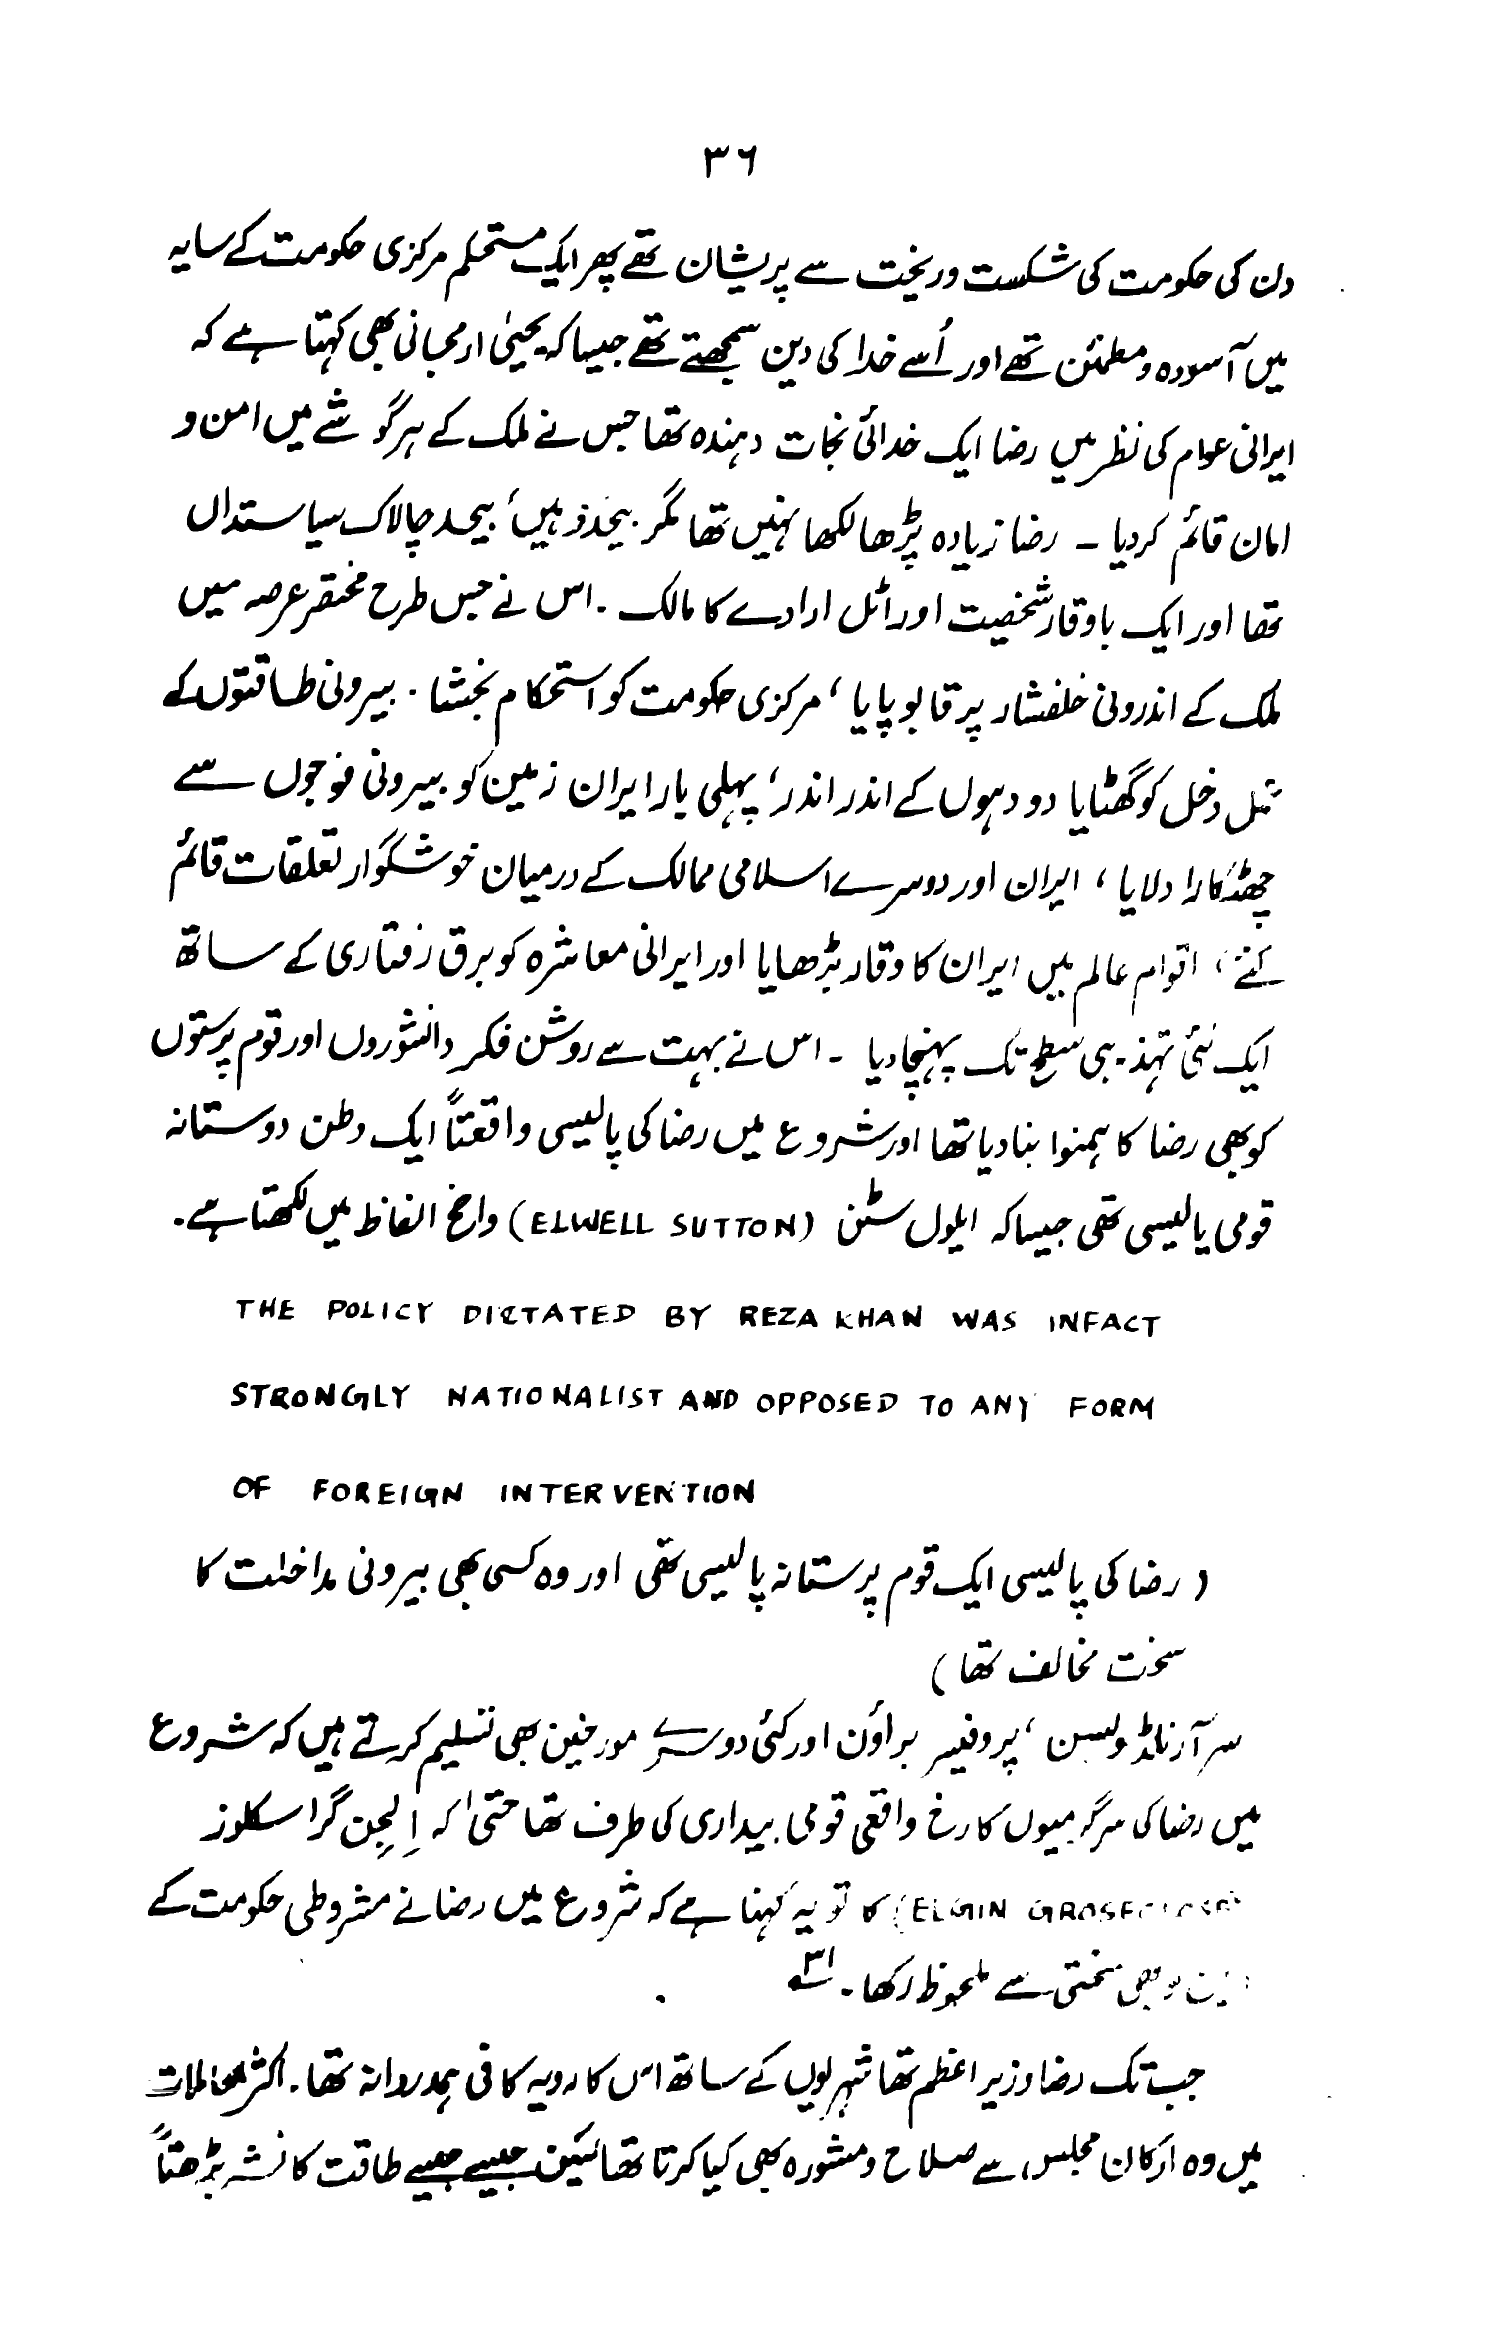 ۳۶
دن کی حکومت کی شکست و ریخت سے پریشان تھے پھر ایک مستحکم مرکزی حکومت کے سایہ
میں آسودہ و مطمئن تھے اور اُسے خدا کی دین سمجھتے تھے جیسا کہ یحییٰ ارمجانی بھی کہتا ہے کہ
ایرانی عوام کی نظر میں رضا ایک خدائی نجات دہندہ تھا جس نے ملک کے ہر گوشے میں امن و
امان قائم کردیا ۔ رضا زیادہ پڑھا لکھا نہیں تھا مگر بیحد ذہین، بیحد چالاک سیاستداں
تھا اور ایک باوقار شخصیت اور اٹل ارادے کا مالک ۔ اس نے جس طرح مختصر عرصہ میں
ملک کے اندرونی خلفشار پر قابو پایا، مرکزی حکومت کو استحکام بخشا ۔ بیرونی طاقتوں کے
عمل دخل کو گھٹایا دو دہوں کے اندر اندر، پہلی بار ایران زمین کو بیرونی فوجوں سے
چھٹکارا دلایا، ایران اور دوسرے اسلامی ممالک کے درمیان خوشگوار تعلقات قائم
کئے، اقوام عالم میں ایران کا وقار بڑھایا اور ایرانی معاشرہ کو برق رفتاری کے ساتھ
ایک نئی تہذیبی سطح تک پہنچا دیا ۔ اس نے بہت سے روشن فکر دانشوروں اور قوم پرستوں
کو بھی رضا کا ہمنوا بنا دیا تھا اور شروع میں رضا کی پالیسی واقعتاً ایک وطن دوستانہ
قومی پالیسی تھی جیسا کہ ایلول سٹن (ELWELL SUTTON) واضح الفاظ میں لکھتا ہے ۔
THE POLICY DICTATED BY REZA KHAN WAS INFACT
STRONGLY NATIONALIST AND OPPOSED TO ANY FORM
OF FOREIGN INTERVENTION
( رضا کی پالیسی ایک قوم پرستانہ پالیسی تھی اور وہ کسی بھی بیرونی مداخلت کا
سخت مخالف تھا )
سر آرنلڈ ولسن، پروفیسر براؤن اور کئی دوسرے مورخین بھی تسلیم کرتے ہیں کہ شروع
میں رضا کی سرگرمیوں کا رخ واقعی قومی بیداری کی طرف تھا حتیٰ کہ اِلیجِن گراسکلوز
(ELGIN GROSECLOSE) کا تو یہ کہنا ہے کہ شروع میں رضا نے مشروطی حکومت کے
سختی سے ملحوظ رکھا ۔ ۳۱
جب تک رضا وزیر اعظم تھا شہریوں کے ساتھ اس کا رویہ کافی ہمدردانہ تھا ۔ اکثر معاملات
میں وہ ارکان مجلس سے صلاح و مشورہ بھی کیا کرتا تھا لیکن جیسے جیسے طاقت کا نشہ بڑھتا